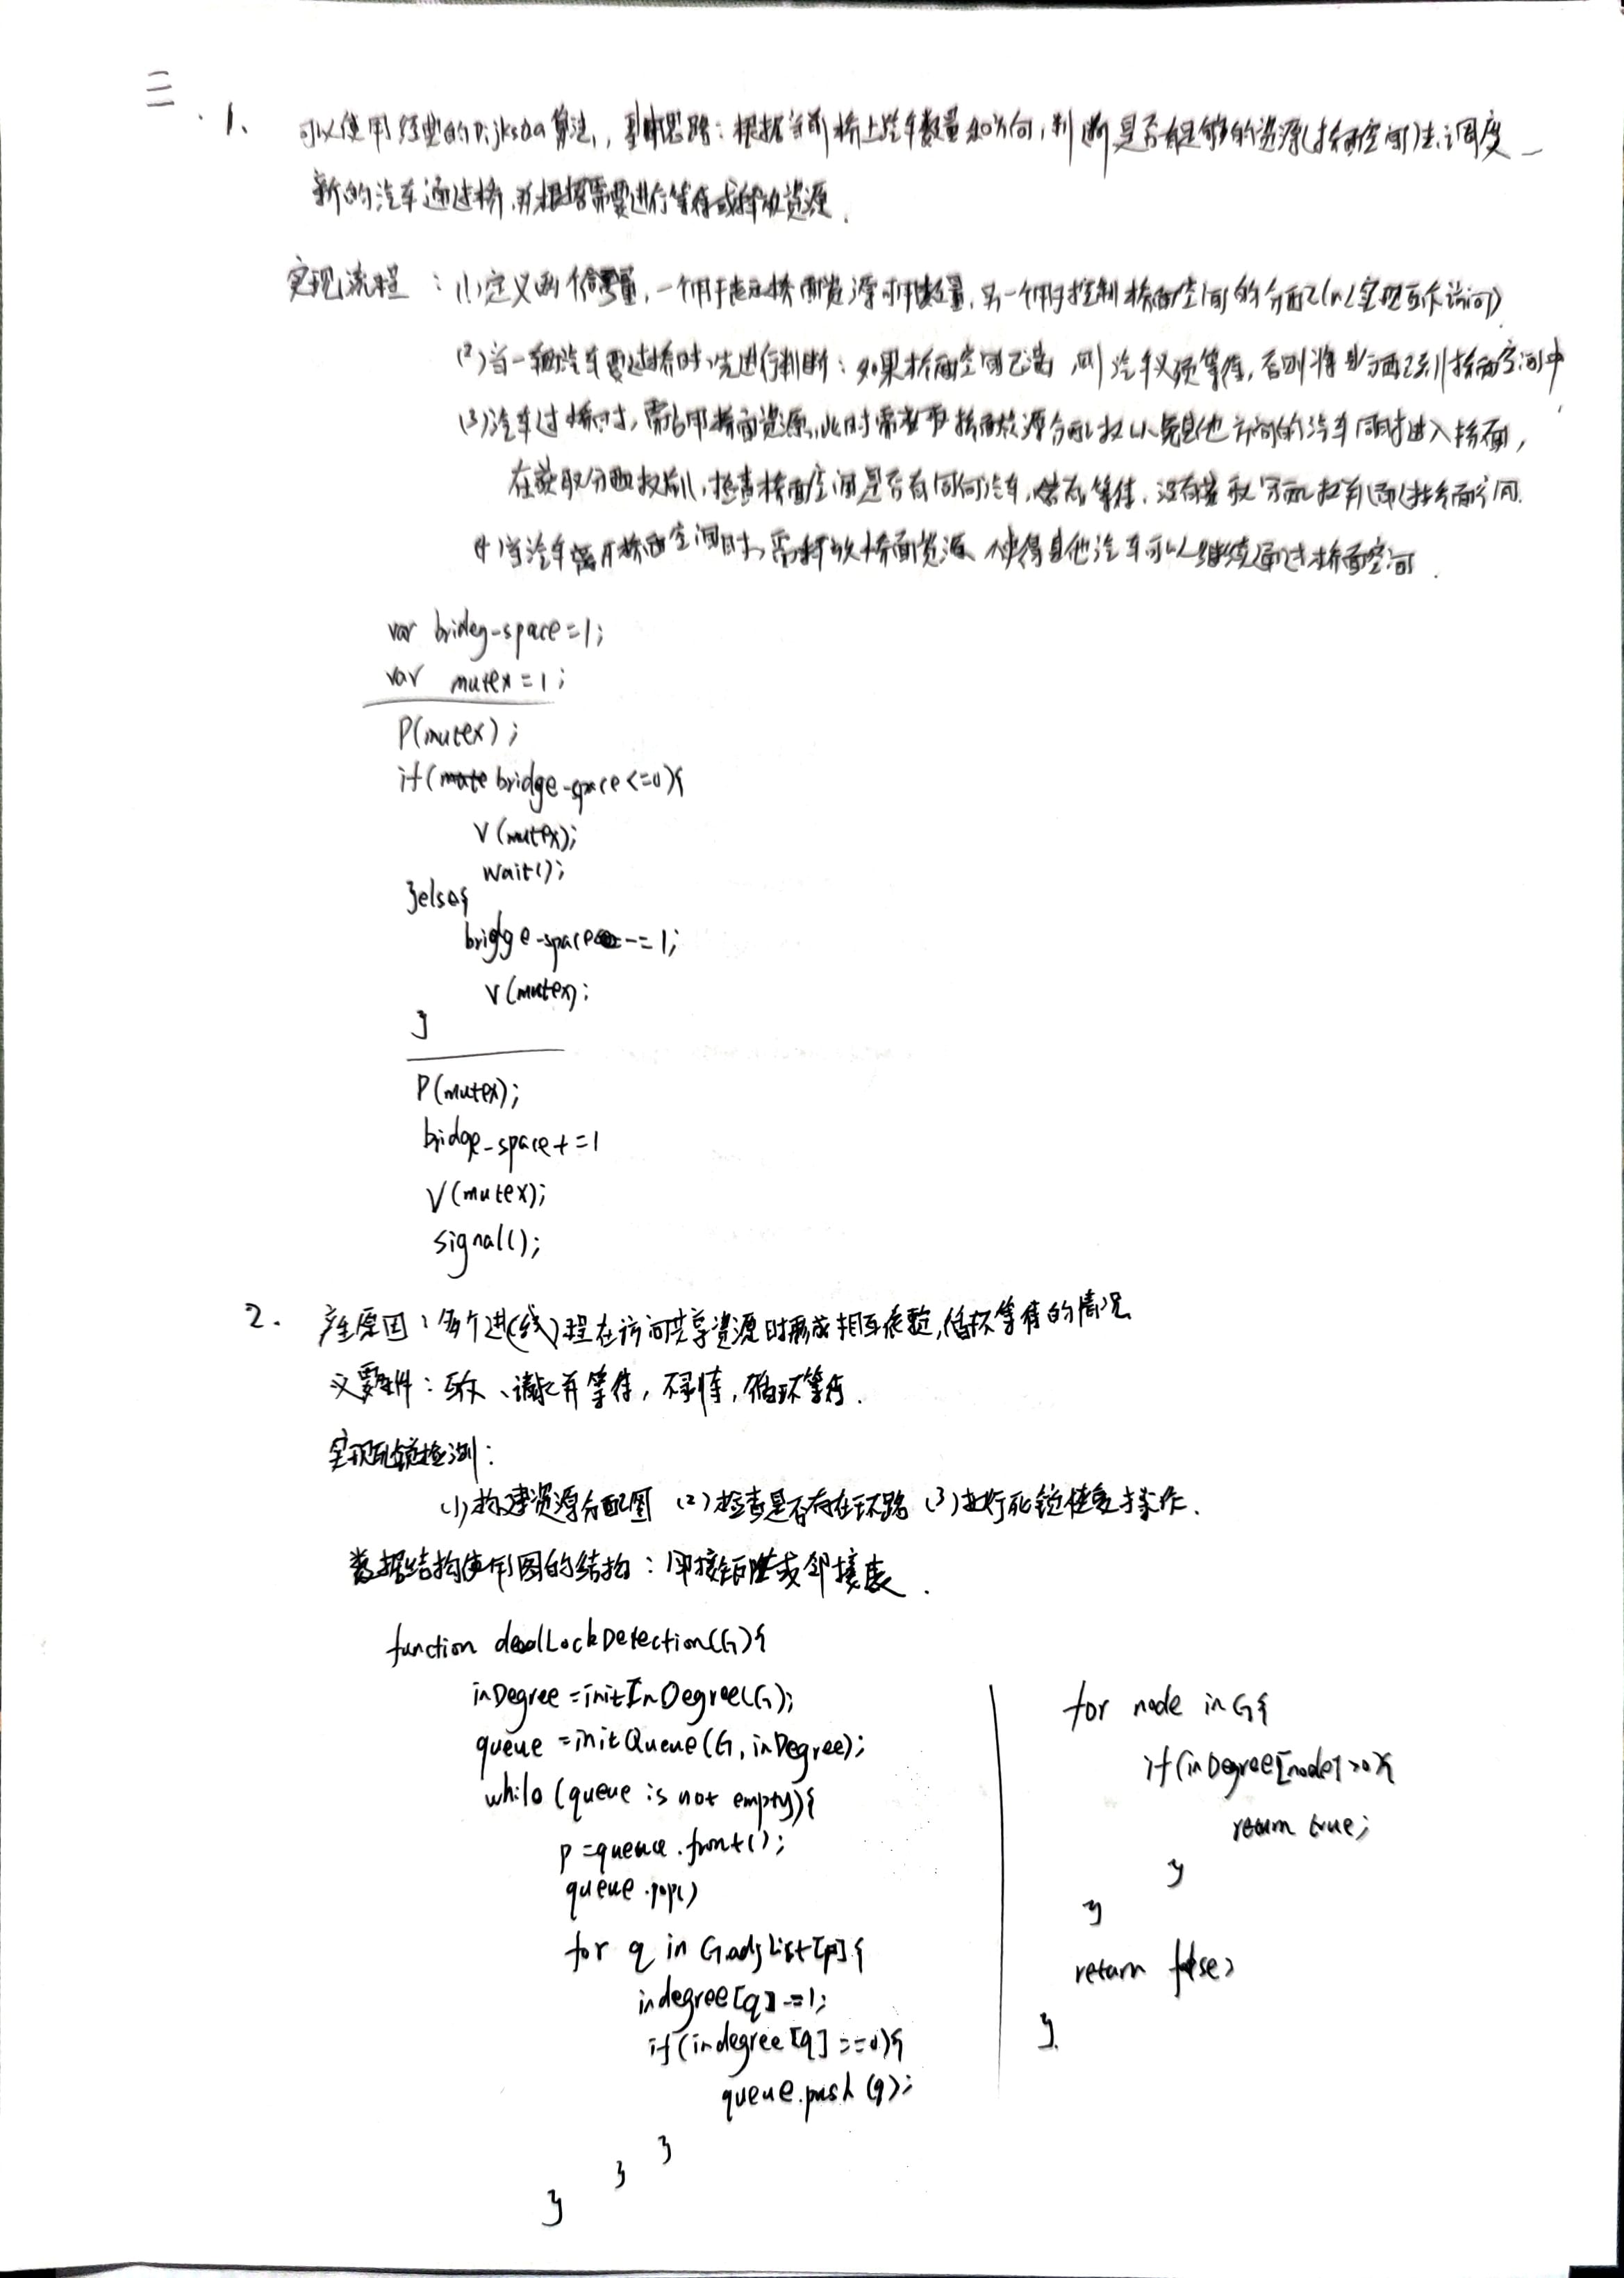 三.1、 可以使用经典的Dijksta算法,基本思路:根据当前桥上汽车数量和方向,判断是否有足够的资源(桥面空间)去调度
新的汽车通过桥,并根据需要进行等待或释放资源.
实现流程:(1)定义两个信号量,一个用于表示桥面资源可用数量,另一个用于控制桥面空间的分配(以实现互斥访问)
(2)当一辆汽车要过桥时,先进行判断:如果桥面空间已满,则汽车必须等待,否则将其分配到桥面空间中
(3)汽车过桥时,需占用桥面资源,此时需要桥面资源分配权以免其他方向的汽车同时进入桥面,
在获取分配权前,检查桥面空间是否有同向汽车,若有等待,没有获取分配权并通过桥面空间.
(4)当汽车离开桥面空间时,需释放桥面资源,使得其他汽车可以继续通过桥面空间.
var brideg-space=1;
var mutex=1;
P(mutex);
if(bridge-space<=0){
V(mutex);
wait();
}else{
bridge-space-=1;
V(mutex);
}
P(mutex);
bridge-space+=1
V(mutex);
signal();
2. 产生原因:多个进(线)程在访问共享资源时形成相互依赖,循环等待的情况
必要条件:互斥、请求并等待,不剥夺,循环等待.
实现死锁检测:
(1)构建资源分配图 (2)检查是否存在环路 (3)执行死锁恢复操作.
数据结构使用图的结构:邻接矩阵或邻接表.
function deadLockDetection(G){
inDegree=initInDegree(G);
queue=initQueue(G,inDegree);
while(queue is not empty){
p=queue.front();
queue.pop()
for q in G.adjList[p]{
indegree[q]-=1;
if(indegree[q]==0){
queue.push(q);
}
}
}
for node in G{
if(inDegree[node]>0){
return true;
}
}
return false;
}